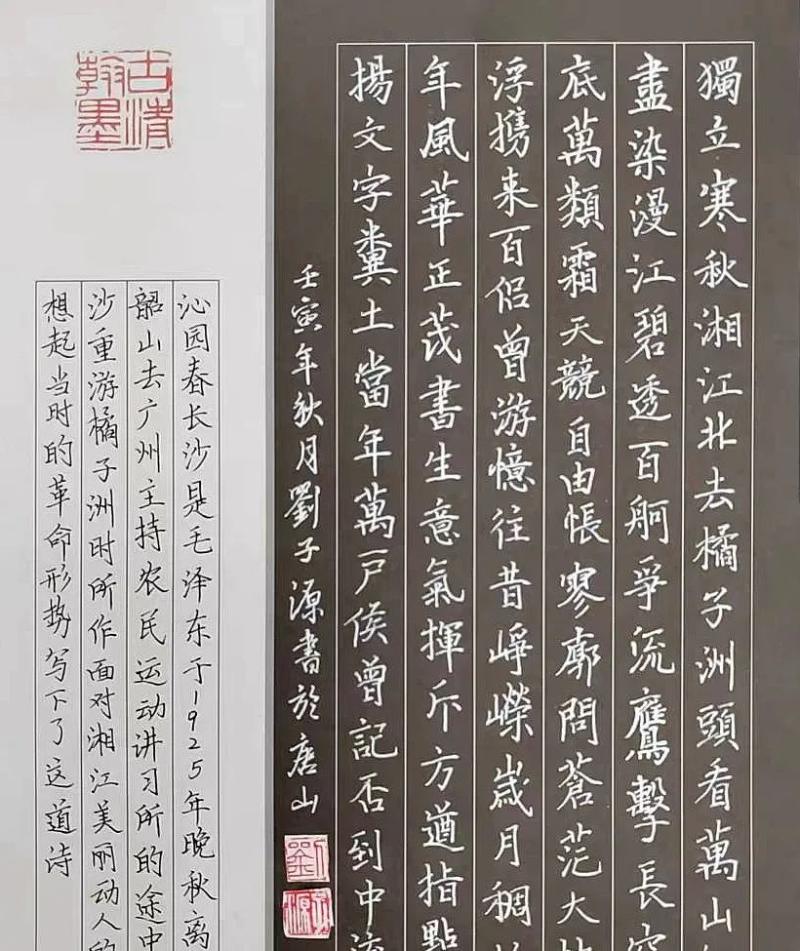 獨立寒秋湘江北去橘子洲頭看萬山
盡染漫江碧透百舸爭流鷹擊長空
底萬類霜天競自由帳寥廓問蒼茫大
浮攜来百侣曾游憶往昔崢嶸崴月稠
年風華正茂書生意氣揮斥方遒指點
揚文字糞土當年萬户侯曾記否到中流
壬寅年秋月劉子源書於唐山
劉
古清翰墨
沁园春长沙是毛泽东于1925年晚秋离
韶山去广州主持农民运动讲习所的途中
沙重游橘子洲时所作面对湘江美丽动人的
想起当时的革命形势写下了这道诗